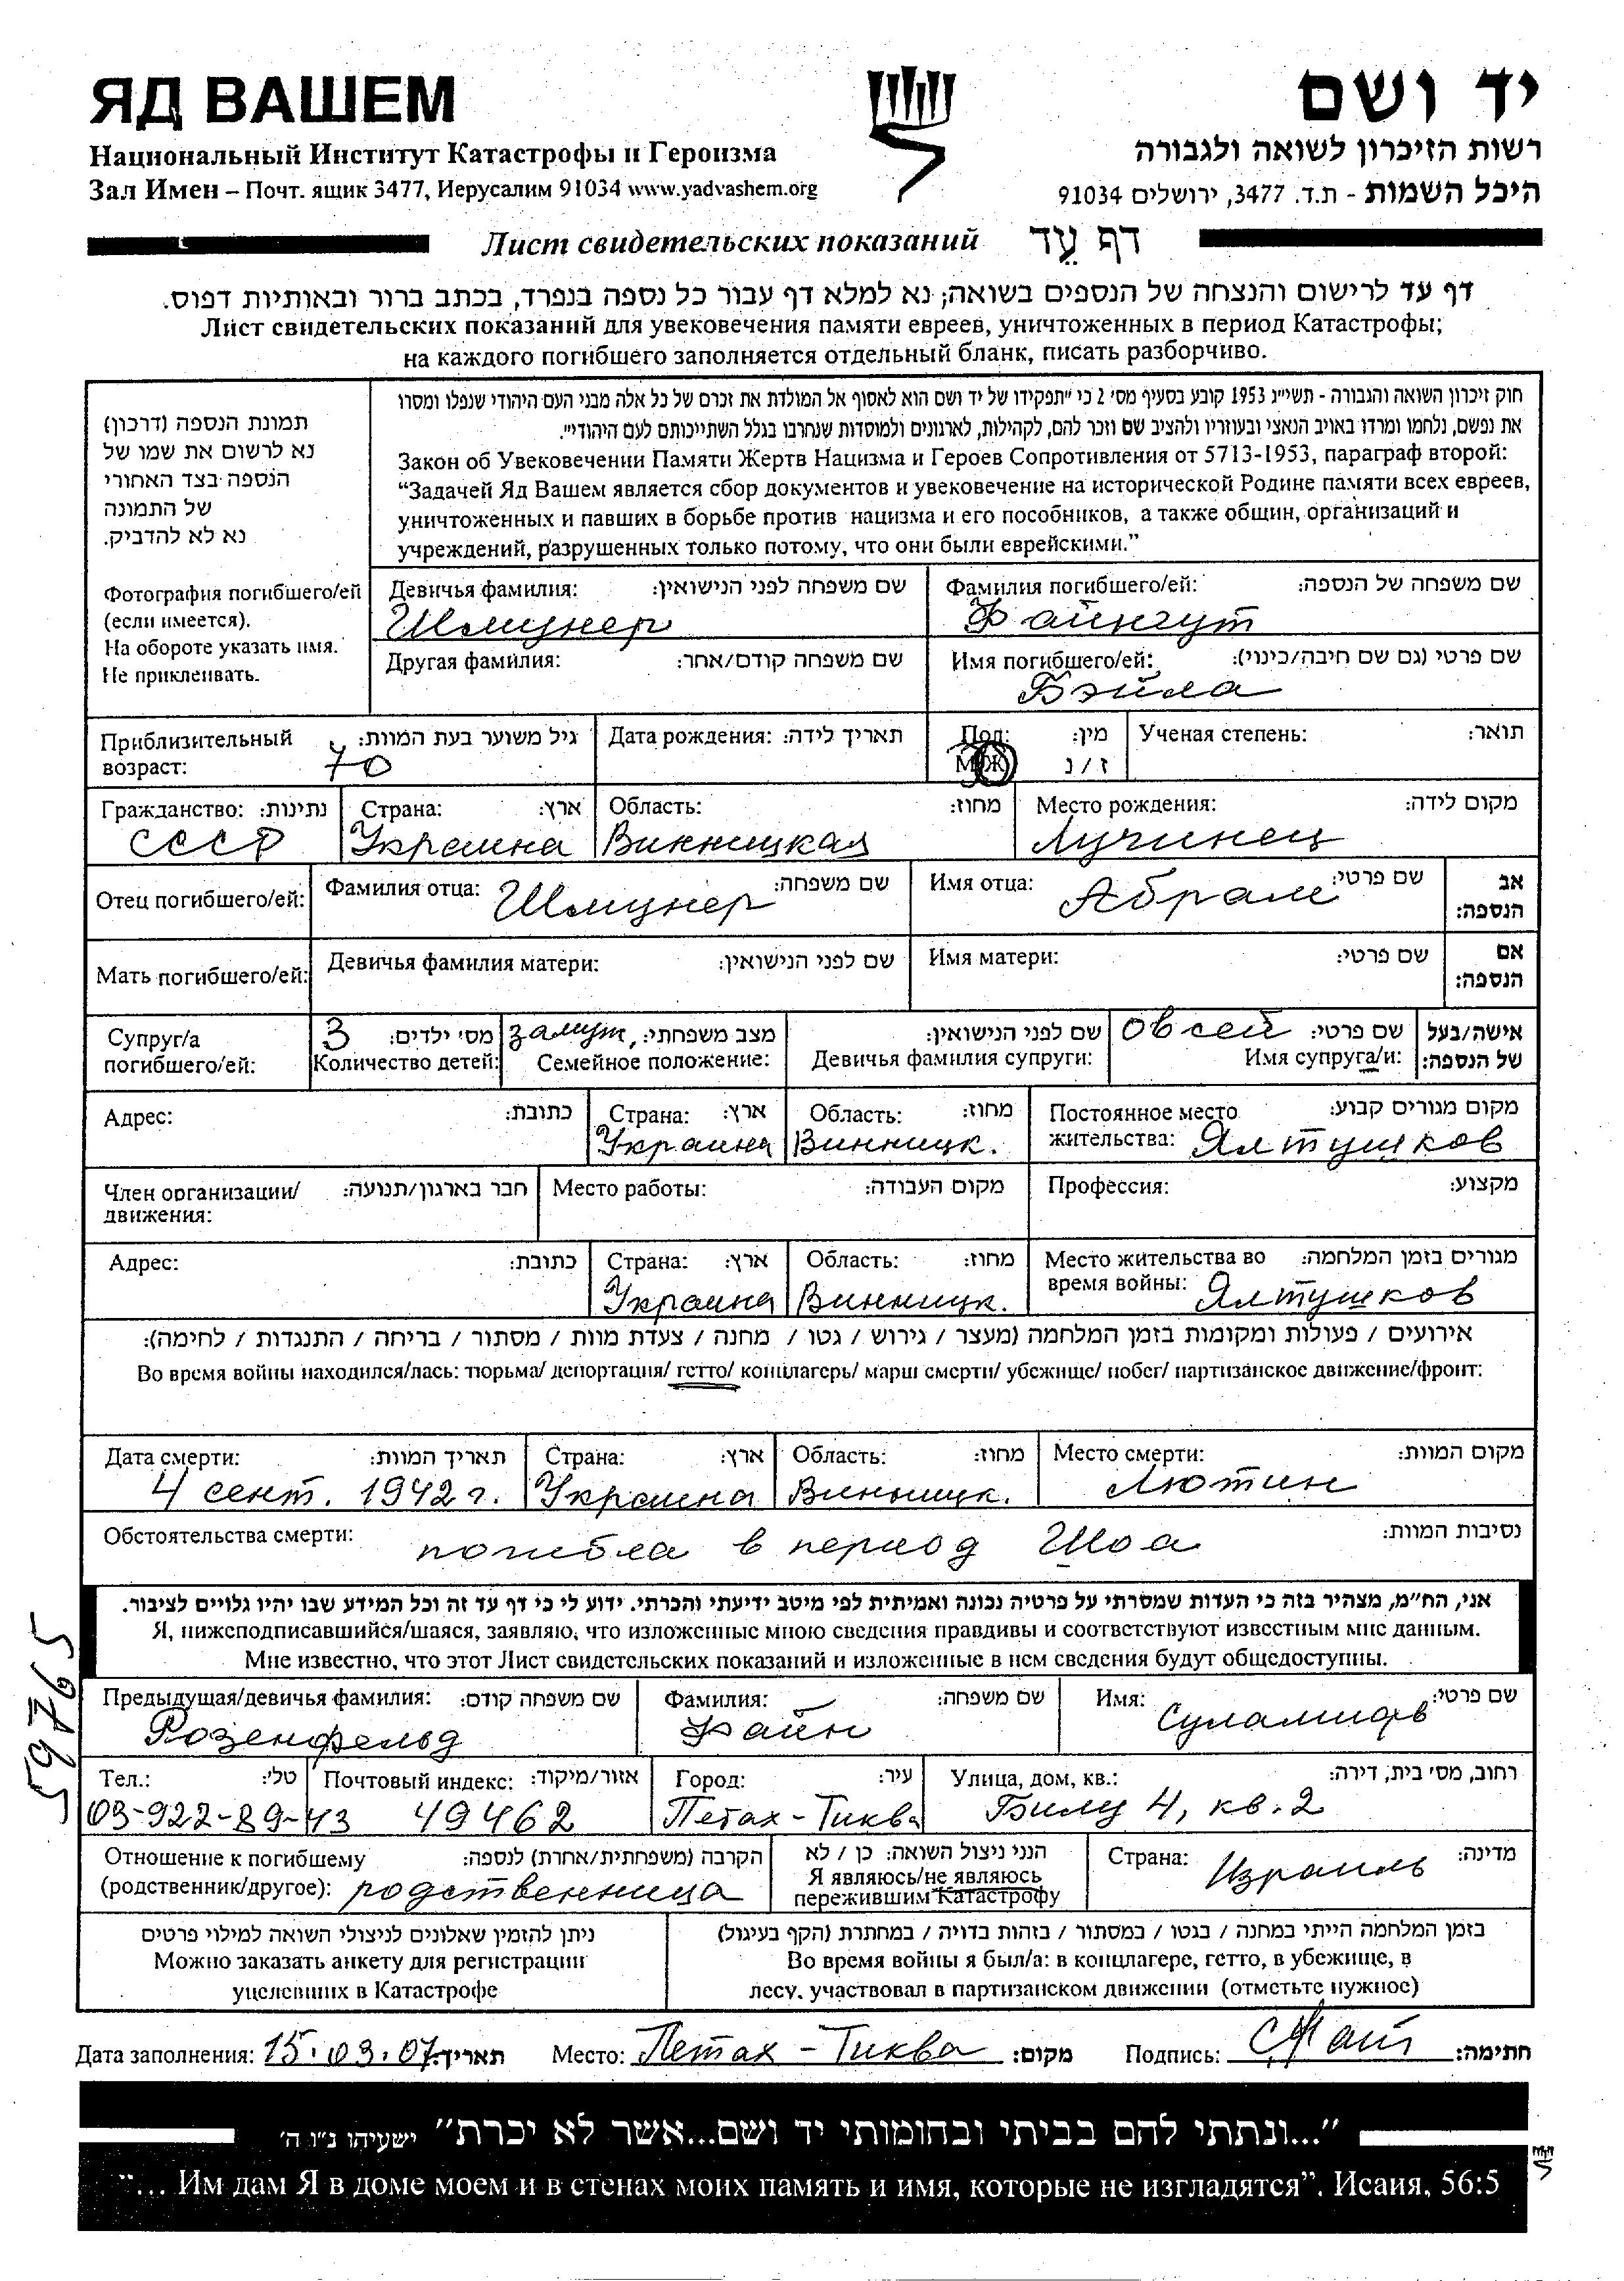 ЯД ВАШЕМ
יד ושם
Национальный Институт Катастрофы и Героизма
רשות הזיכרון לשואה ולגבורה
Зал Имен – Почт. ящик 3477, Иерусалим 91034 www.yadvashem.org
היכל השמות - ת.ד. 3477, ירושלים 91034
Лист свидетельских показаний דף עֵד
דף עד לרישום והנצחה של הנספים בשואה; נא למלא דף עבור כל נספה בנפרד, בכתב ברור ובאותיות דפוס.
Лист свидетельских показаний для увековечения памяти евреев, уничтоженных в период Катастрофы;
на каждого погибшего заполняется отдельный бланк, писать разборчиво.
תמונת הנספה (דרכון)
נא לרשום את שמו של
הנספה בצד האחורי
של התמונה
נא לא להדביק.
Фотография погибшего/ей
(если имеется).
На обороте указать имя.
Не приклеивать.
חוק זיכרון השואה והגבורה - תשי"ג 1953 קובע בסעיף מס' 2 כי "תפקידו של יד ושם הוא לאסוף אל המולדת את זכרם של כל אלה מבני העם היהודי שנפלו ומסרו
את נפשם, נלחמו ומרדו באויב הנאצי ובעוזריו ולהציב שם וזכר להם, לקהילות, לארגונים ולמוסדות שנחרבו בגלל השתייכותם לעם היהודי".
Закон об Увековечении Памяти Жертв Нацизма и Героев Сопротивления от 5713-1953, параграф второй:
“Задачей Яд Вашем является сбор документов и увековечение на исторической Родине памяти всех евреев,
уничтоженных и павших в борьбе против нацизма и его пособников, а также общин, организаций и
учреждений, разрушенных только потому, что они были еврейскими.”
Девичья фамилия: שם משפחה לפני הנישואין:
Шмуцнер
Фамилия погибшего/ей: שם משפחה של הנספה:
Файнгут
Другая фамилия: שם משפחה קודם/אחר:
Имя погибшего/ей: שם פרטי (גם שם חיבה/כינוי):
Бэйла
Приблизительный גיל משוער בעת המוות:
возраст: 70
Дата рождения: תאריך לידה:
Пол: מין:
М/Ж ז / נ
Ученая степень: תואר:
Гражданство: נתינות:
СССР
Страна: ארץ:
Украина
Область: מחוז:
Винницкая
Место рождения: מקום לידה:
Лучинец
Отец погибшего/ей:
Фамилия отца: Шмуцнер שם משפחה:
Имя отца: Абрам שם פרטי:
אב
הנספה:
Мать погибшего/ей:
Девичья фамилия матери: שם לפני הנישואין:
Имя матери: שם פרטי:
אם
הנספה:
Супруг/а
погибшего/ей:
3 מס' ילדים:
Количество детей:
замуж, מצב משפחתי:
Семейное положение:
שם לפני הנישואין:
Девичья фамилия супруги:
Овсей שם פרטי:
Имя супруга/и:
אישה/בעל
של הנספה:
Адрес: כתובת:
Страна: ארץ:
Украина
Область: מחוז:
Винницк.
Постоянное место מקום מגורים קבוע:
жительства: Ялтушков
Член организации/ חבר בארגון/תנועה:
движения:
Место работы: מקום העבודה:
Профессия: מקצוע:
Адрес: כתובת:
Страна: ארץ:
Украина
Область: מחוז:
Винницк.
Место жительства во מגורים בזמן המלחמה:
время войны: Ялтушков
אירועים / פעולות ומקומות בזמן המלחמה (מעצר / גירוש / גטו / מחנה / צעדת מוות / מסתור / בריחה / התנגדות / לחימה):
Во время войны находился/лась: тюрьма/ депортация/ гетто/ концлагерь/ марш смерти/ убежище/ побег/ партизанское движение/фронт:
Дата смерти: תאריך המוות:
4 сент. 1942 г.
Страна: ארץ:
Украина
Область: מחוז:
Винницк.
Место смерти: מקום המוות:
Лютин
Обстоятельства смерти: נסיבות המוות:
погибла в период Шоа
אני, הח"מ, מצהיר בזה כי העדות שמסרתי על פרטיה נכונה ואמיתית לפי מיטב ידיעתי והכרתי. ידוע לי כי דף עד זה וכל המידע שבו יהיו גלויים לציבור.
Я, нижеподписавшийся/шаяся, заявляю, что изложенные мною сведения правдивы и соответствуют известным мне данным.
Мне известно, что этот Лист свидетельских показаний и изложенные в нем сведения будут общедоступны.
59765
Предыдущая/девичья фамилия: שם משפחה קודם:
Розенфельд
Фамилия: שם משפחה:
Файн
Имя: שם פרטי:
Суламифь
Тел.: טל':
03-922-89-43
Почтовый индекс: אזור/מיקוד:
49462
Город: עיר:
Петах-Тиква
Улица, дом, кв.: רחוב, מס' בית, דירה:
Билу 4, кв. 2
Отношение к погибшему הקרבה (משפחתית/אחרת) לנספה:
(родственник/другое): родственница
הנני ניצול השואה: כן / לא
Я являюсь/не являюсь
пережившим Катастрофу
Страна: Израиль מדינה:
ניתן להזמין שאלונים לניצולי השואה למילוי פרטים
Можно заказать анкету для регистрации
уцелевших в Катастрофе
בזמן המלחמה הייתי במחנה / בגטו / במסתור / בזהות בדויה / במחתרת (הקף בעיגול)
Во время войны я был/а: в концлагере, гетто, в убежище, в
лесу, участвовал в партизанском движении (отметьте нужное)
Дата заполнения: 15.03.07 תאריך: Место: Петах-Тиква מקום: Подпись: חתימה:
"...ונתתי להם בביתי ובחומותי יד ושם...אשר לא יכרת" ישעיהו נ"ו ה'
“... Им дам Я в доме моем и в стенах моих память и имя, которые не изгладятся”. Исаия, 56:5